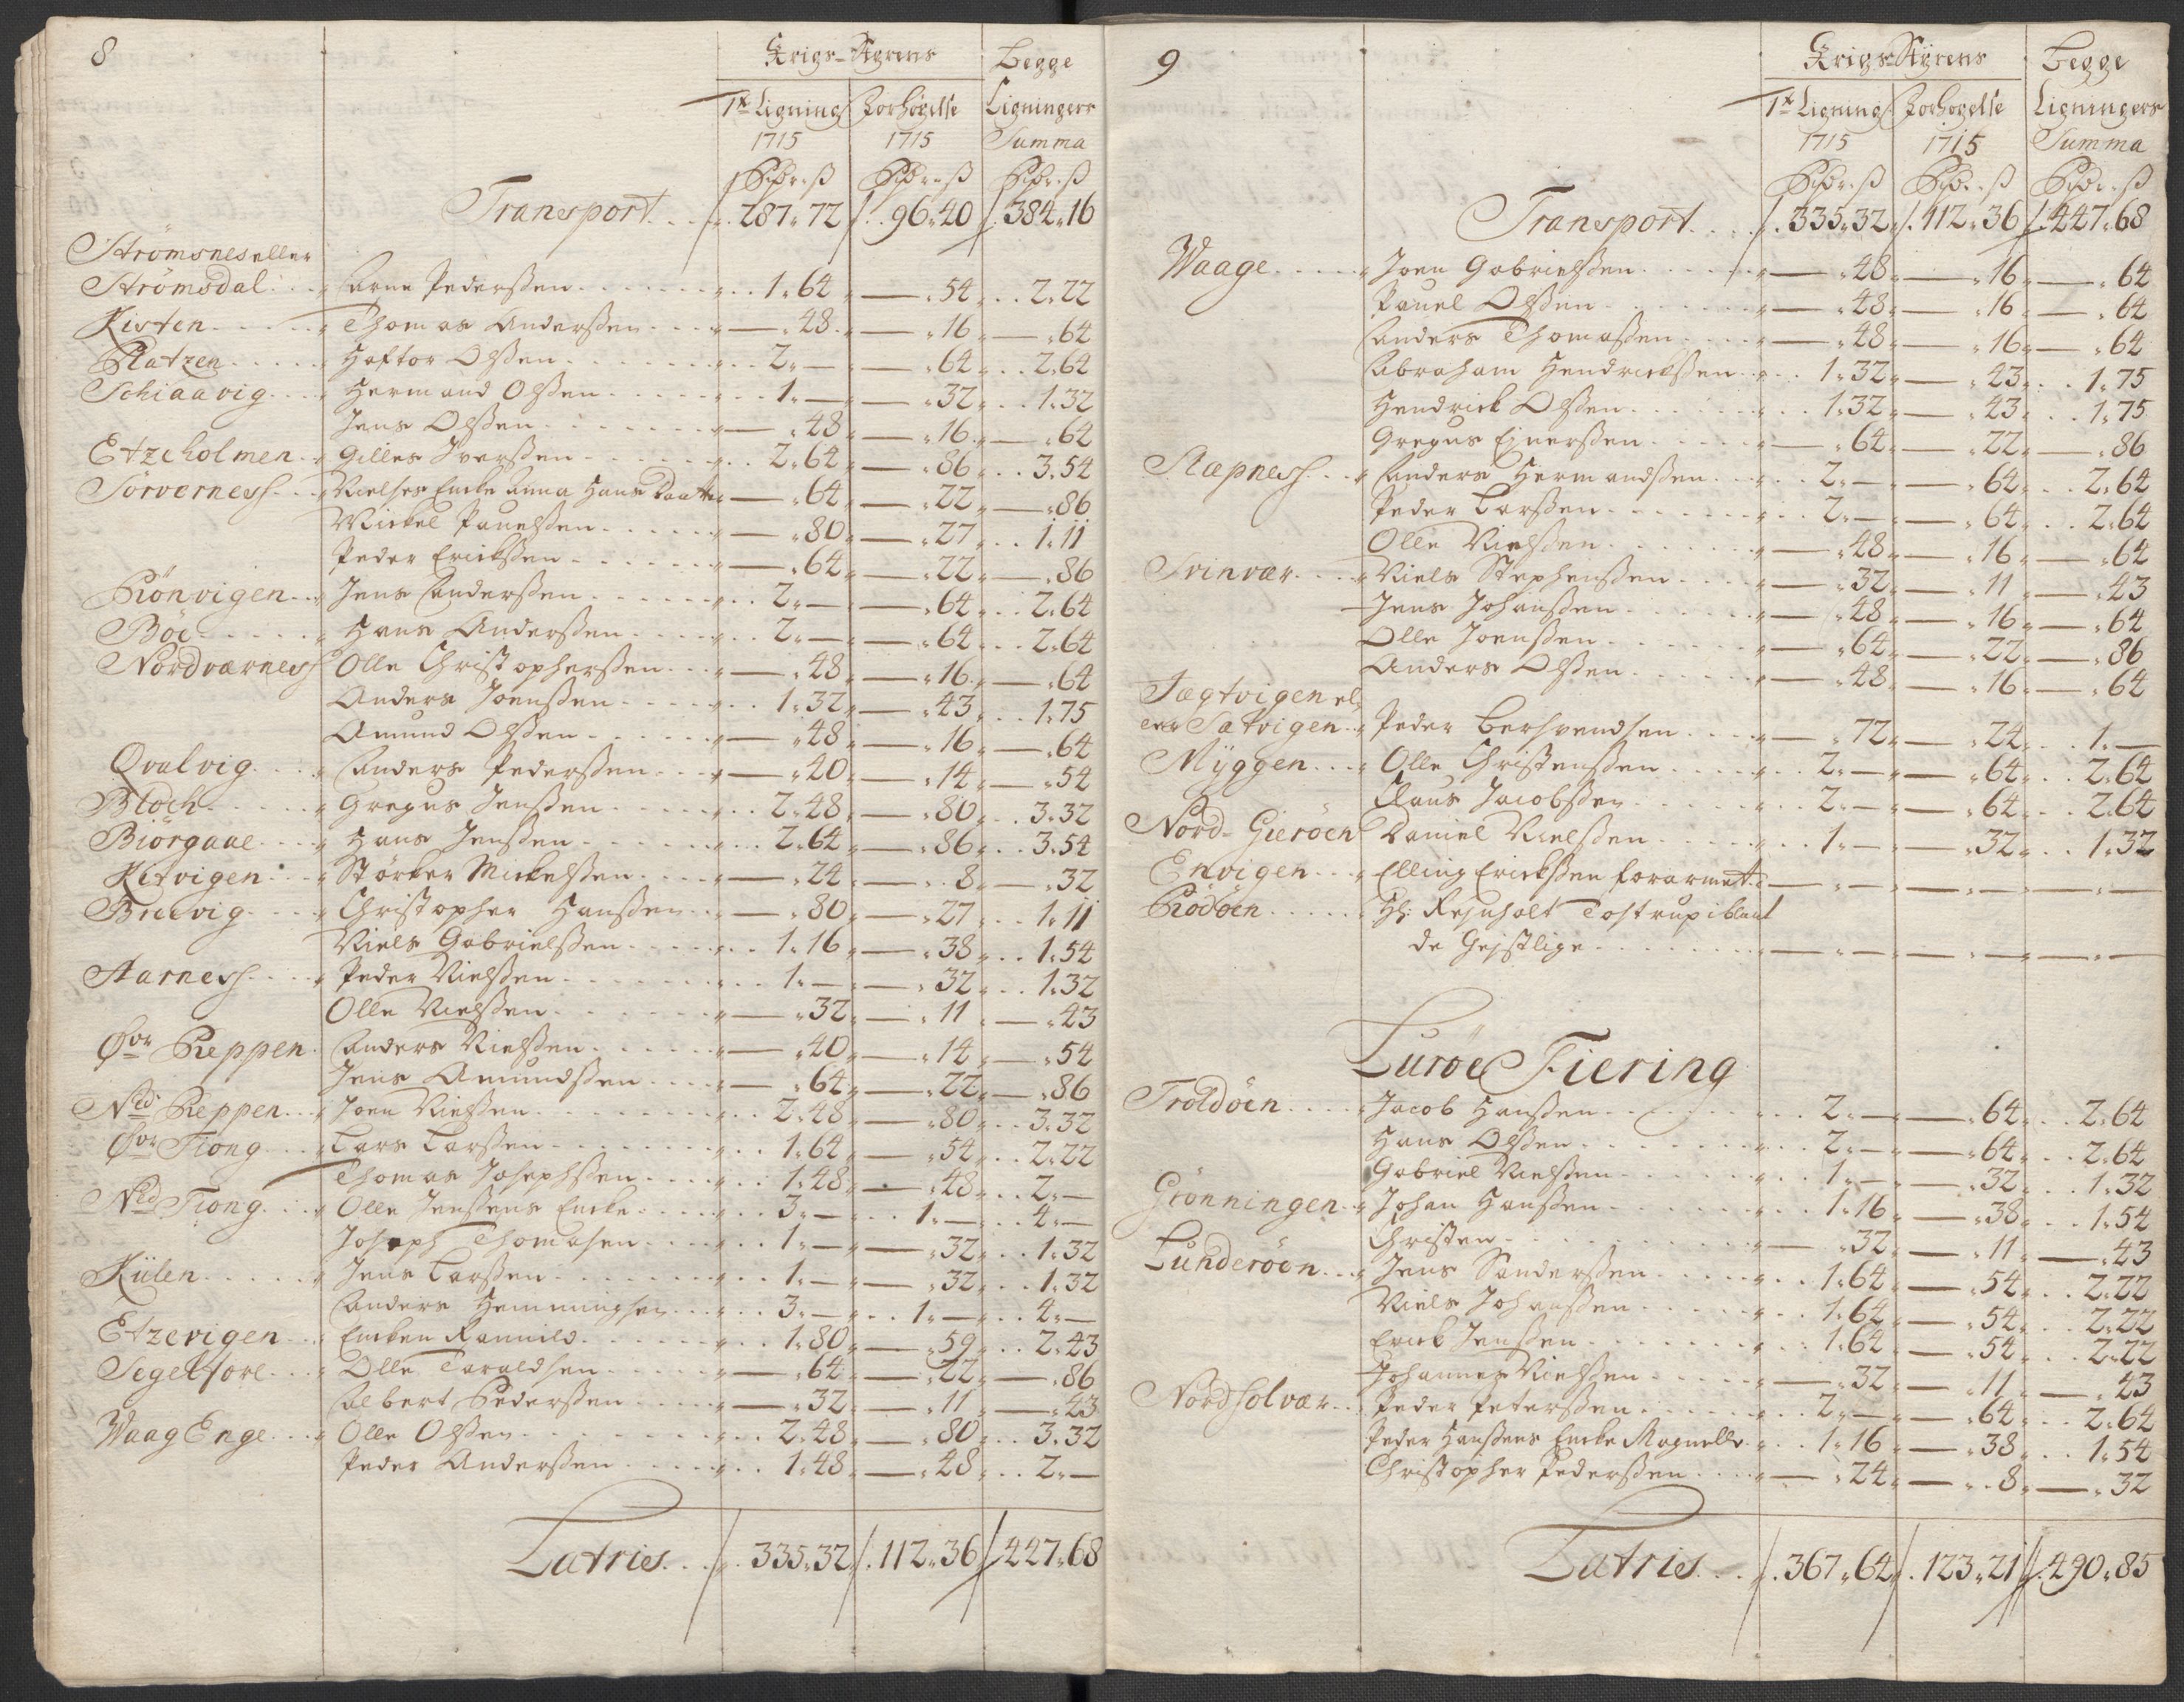 8
Krigs-Styrens Begge
1te Ligning Forhøyelse Ligningers
1715 1715 Summa
Rixdr ß Rixdr ß Rixdr ß
Transport 287 72 96 40 384 16
Strömsnes eller
Strömsdal Arne Pederssen 1 64 — 54 2 22
Kisten Thomas Anderssen — 48 — 16 — 64
Platzen Haftor Olssen 2 — — 64 2 64
Schiaavig Hermand Olssen 1 — — 32 1 32
Jens Olssen — 48 — 16 — 64
Etzeholmen Gilles Iverssen 2 64 — 86 3 54
Sörverness Nielses Encke Anna Hans Daatter — 64 — 22 — 86
Mickel Pauelssen — 80 — 27 1 11
Peder Erickssen — 64 — 22 — 86
Rönvigen Jens Anderssen 2 — — 64 2 64
Böe Hans Anderssen 2 — — 64 2 64
Nordværness Olle Christopherssen — 48 — 16 — 64
Anders Joenssen 1 32 — 43 1 75
Amund Olssen — 48 — 16 — 64
Qvalvig Anders Pederssen — 40 — 14 — 54
Bloch Gregus Jenssen 2 48 — 80 3 32
Biörgaae Hans Jenssen 2 64 — 86 3 54
Kitvigen Störker Mickelssen — 24 — 8 — 32
Breevig Christopher Hanssen — 80 — 27 1 11
Niels Gabrielssen 1 16 — 38 1 54
Aarness Peder Nielssen 1 — — 32 1 32
Olle Nielssen — 32 — 11 — 43
Øvr Reppen Anders Nielssen — 40 — 14 — 54
Jens Amundssen — 64 — 22 — 86
Ned Reppen Joen Nielssen 2 48 — 80 3 32
Øvr Tiong Lars Larssen 1 64 — 54 2 22
Thomas Josephssen 1 48 — 48 2 —
Ned Tiong Olle Jenssens Encke 3 — 1 — 4 —
Joseph Thomasen 1 — — 32 1 32
Kiilen Jens Larssen 1 — — 32 1 32
Anders Hemmingsen 3 — 1 — 4 —
Etzevigen Encken Rannild 1 80 — 59 2 43
Segelfore Olle Taraldsen — 64 — 22 — 86
Albert Pederssen — 32 — 11 — 43
Waag Enge Olle Olssen 2 48 — 80 3 32
Peder Anderssen 1 48 — 48 2 —
Latries 335 32 112 36 447 68
9
Krigs-Styrens Begge
1te Ligning Forhøyelse Ligningers
1715 1715 Summa
Rixdr ß Rixdr ß Rixdr ß
Transport 335 32 112 36 447 68
Waage Joen Gabrielssen — 48 — 16 — 64
Pauel Olssen — 48 — 16 — 64
Anders Thomassen — 48 — 16 — 64
Abraham Hendrickssen 1 32 — 43 1 75
Hendrick Olssen 1 32 — 43 1 75
Gregus Ejnerssen — 64 — 22 — 86
Næpness Anders Hermandssen 2 — — 64 2 64
Peder Larssen 2 — — 64 2 64
Olle Nielssen — 48 — 16 — 64
Svinvær Niels Stephenssen — 32 — 11 — 43
Jens Johanssen — 48 — 16 — 64
Olle Joenssen — 64 — 22 — 86
Anders Olssen — 48 — 16 — 64
Tægtvigen el
ler Sætvigen Peder Berhvendsen — 72 — 24 1 —
Myggen Olle Christenssen 2 — — 64 2 64
Claus Jacobssen 2 — — 64 2 64
Nord-Gieröen Daniel Nielssen 1 — — 32 1 32
Envigen Elling Erickssen forarmet — — — — — —
Rödöen Hr: Rejnholt Tostrup iblant
de Gejstlige — — — — — —
Luröe Fiering
Troldöen Jacob Hanssen 2 — — 64 2 64
Hans Olssen 2 — — 64 2 64
Gabriel Nielssen 1 — — 32 1 32
Grönningen Johan Hanssen 1 16 — 38 1 54
Christen — 32 — 11 — 43
Lunderöen Jens Sanderssen 1 64 — 54 2 22
Niels Johanssen 1 64 — 54 2 22
Erick Jenssen 1 64 — 54 2 22
Johannes Nielssen — 32 — 11 — 43
Nordsolvær Peder Peterssen 2 — — 64 2 64
Peder Hanssens Encke Magnelld 1 16 — 38 1 54
Christopher Pederssen — 24 — 8 — 32
Latris 367 64 123 21 490 85